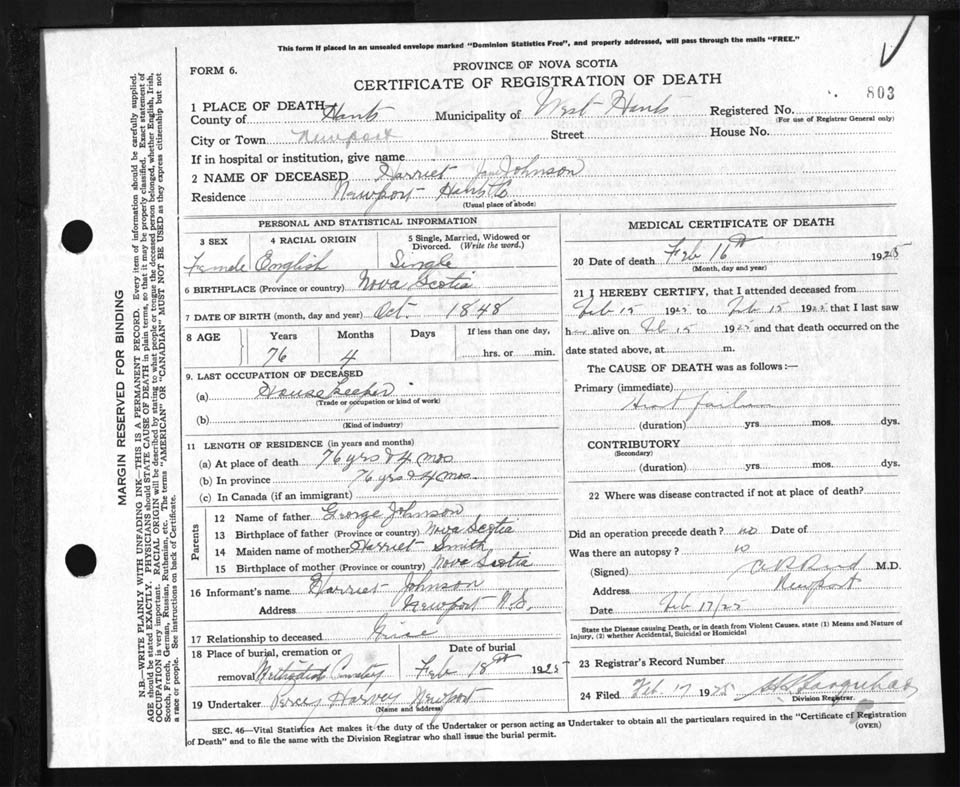 This form if placed in an unsealed envelope marked "Dominion Statistics Free", and properly addressed, will pass through the mails "FREE."
FORM 6.
PROVINCE OF NOVA SCOTIA
CERTIFICATE OF REGISTRATION OF DEATH
803
1 PLACE OF DEATH
County of Hants Municipality of West Hants Registered No.
(For use of Registrar General only)
City or Town Newport Street House No.
If in hospital or institution, give name
2 NAME OF DECEASED Harriet Jane Johnson
Residence Newport Hants Co
(Usual place of abode)
PERSONAL AND STATISTICAL INFORMATION
3 SEX 4 RACIAL ORIGIN 5 Single, Married, Widowed or Divorced. (Write the word.)
Female English Single
6 BIRTHPLACE (Province or country) Nova Scotia
7 DATE OF BIRTH (month, day and year) Oct. 1848
8 AGE Years Months Days If less than one day,
76 4 hrs. or min.
9. LAST OCCUPATION OF DECEASED
(a) House keeper
(Trade or occupation or kind of work)
(b)
(Kind of industry)
11 LENGTH OF RESIDENCE (in years and months)
(a) At place of death 76 yrs & 4 mos
(b) In province 76 yrs & 4 mos.
(c) In Canada (if an immigrant)
Parents
12 Name of father George Johnson
13 Birthplace of father (Province or country) Nova Scotia
14 Maiden name of mother Harriet Smith
15 Birthplace of mother (Province or country) Nova Scotia
16 Informant's name Harriet Johnson
Address Newport N.S.
17 Relationship to deceased
18 Place of burial, cremation or removal Methodist Cemetery Date of burial Feb 18th 1925
19 Undertaker Percy Harvey Newport
(Name and address)
MEDICAL CERTIFICATE OF DEATH
20 Date of death Feb 16th 1925
(Month, day and year)
21 I HEREBY CERTIFY, that I attended deceased from
Feb 15 1925 to Feb 15 1925 that I last saw
h alive on Feb 15 1925 and that death occurred on the
date stated above, at m.
The CAUSE OF DEATH was as follows:—
Primary (immediate)
Heart failure
(duration) yrs. mos. dys.
CONTRIBUTORY
(Secondary)
(duration) yrs. mos. dys.
22 Where was disease contracted if not at place of death?
Did an operation precede death? no Date of
Was there an autopsy? no
(Signed) M.D.
Address Newport
Date Feb 17/25
State the Disease causing Death, or in death from Violent Causes, state (1) Means and Nature of Injury, (2) whether Accidental, Suicidal or Homicidal
23 Registrar's Record Number
24 Filed Feb 17 1925
Division Registrar
SEC. 46—Vital Statistics Act makes it the duty of the Undertaker or person acting as Undertaker to obtain all the particulars required in the "Certificate of Registration
of Death" and to file the same with the Division Registrar who shall issue the burial permit. (OVER)
MARGIN RESERVED FOR BINDING
N.B.—WRITE PLAINLY WITH UNFADING INK—THIS IS A PERMANENT RECORD. Every item of information should be carefully supplied.
AGE should be stated EXACTLY. PHYSICIANS should STATE CAUSE OF DEATH in plain terms, so that it may be properly classified. Exact statement of
OCCUPATION is very important. RACIAL ORIGIN will be described by stating to what people or tongue the deceased person belonged, whether English, Irish,
Scotch, French, German, Russian, Ruthenian, etc. The terms "AMERICAN" OR "CANADIAN" MUST NOT BE USED as they express citizenship but not
a race or people. See instructions on back of Certificate.